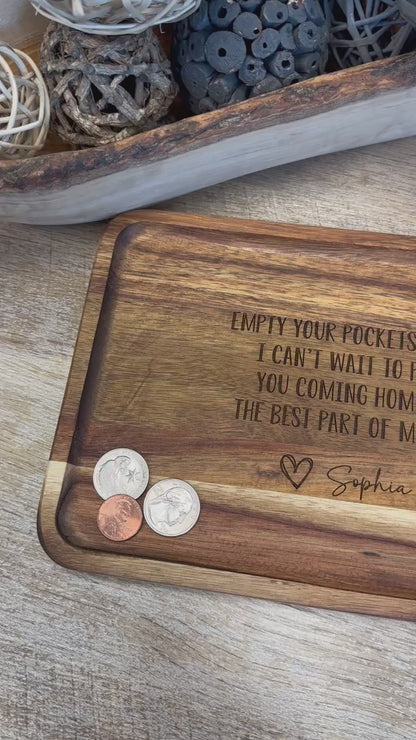 EMPTY YOUR POCKETS
I CAN'T WAIT TO
YOU COMING HOM
THE BEST PART OF M
Sophia